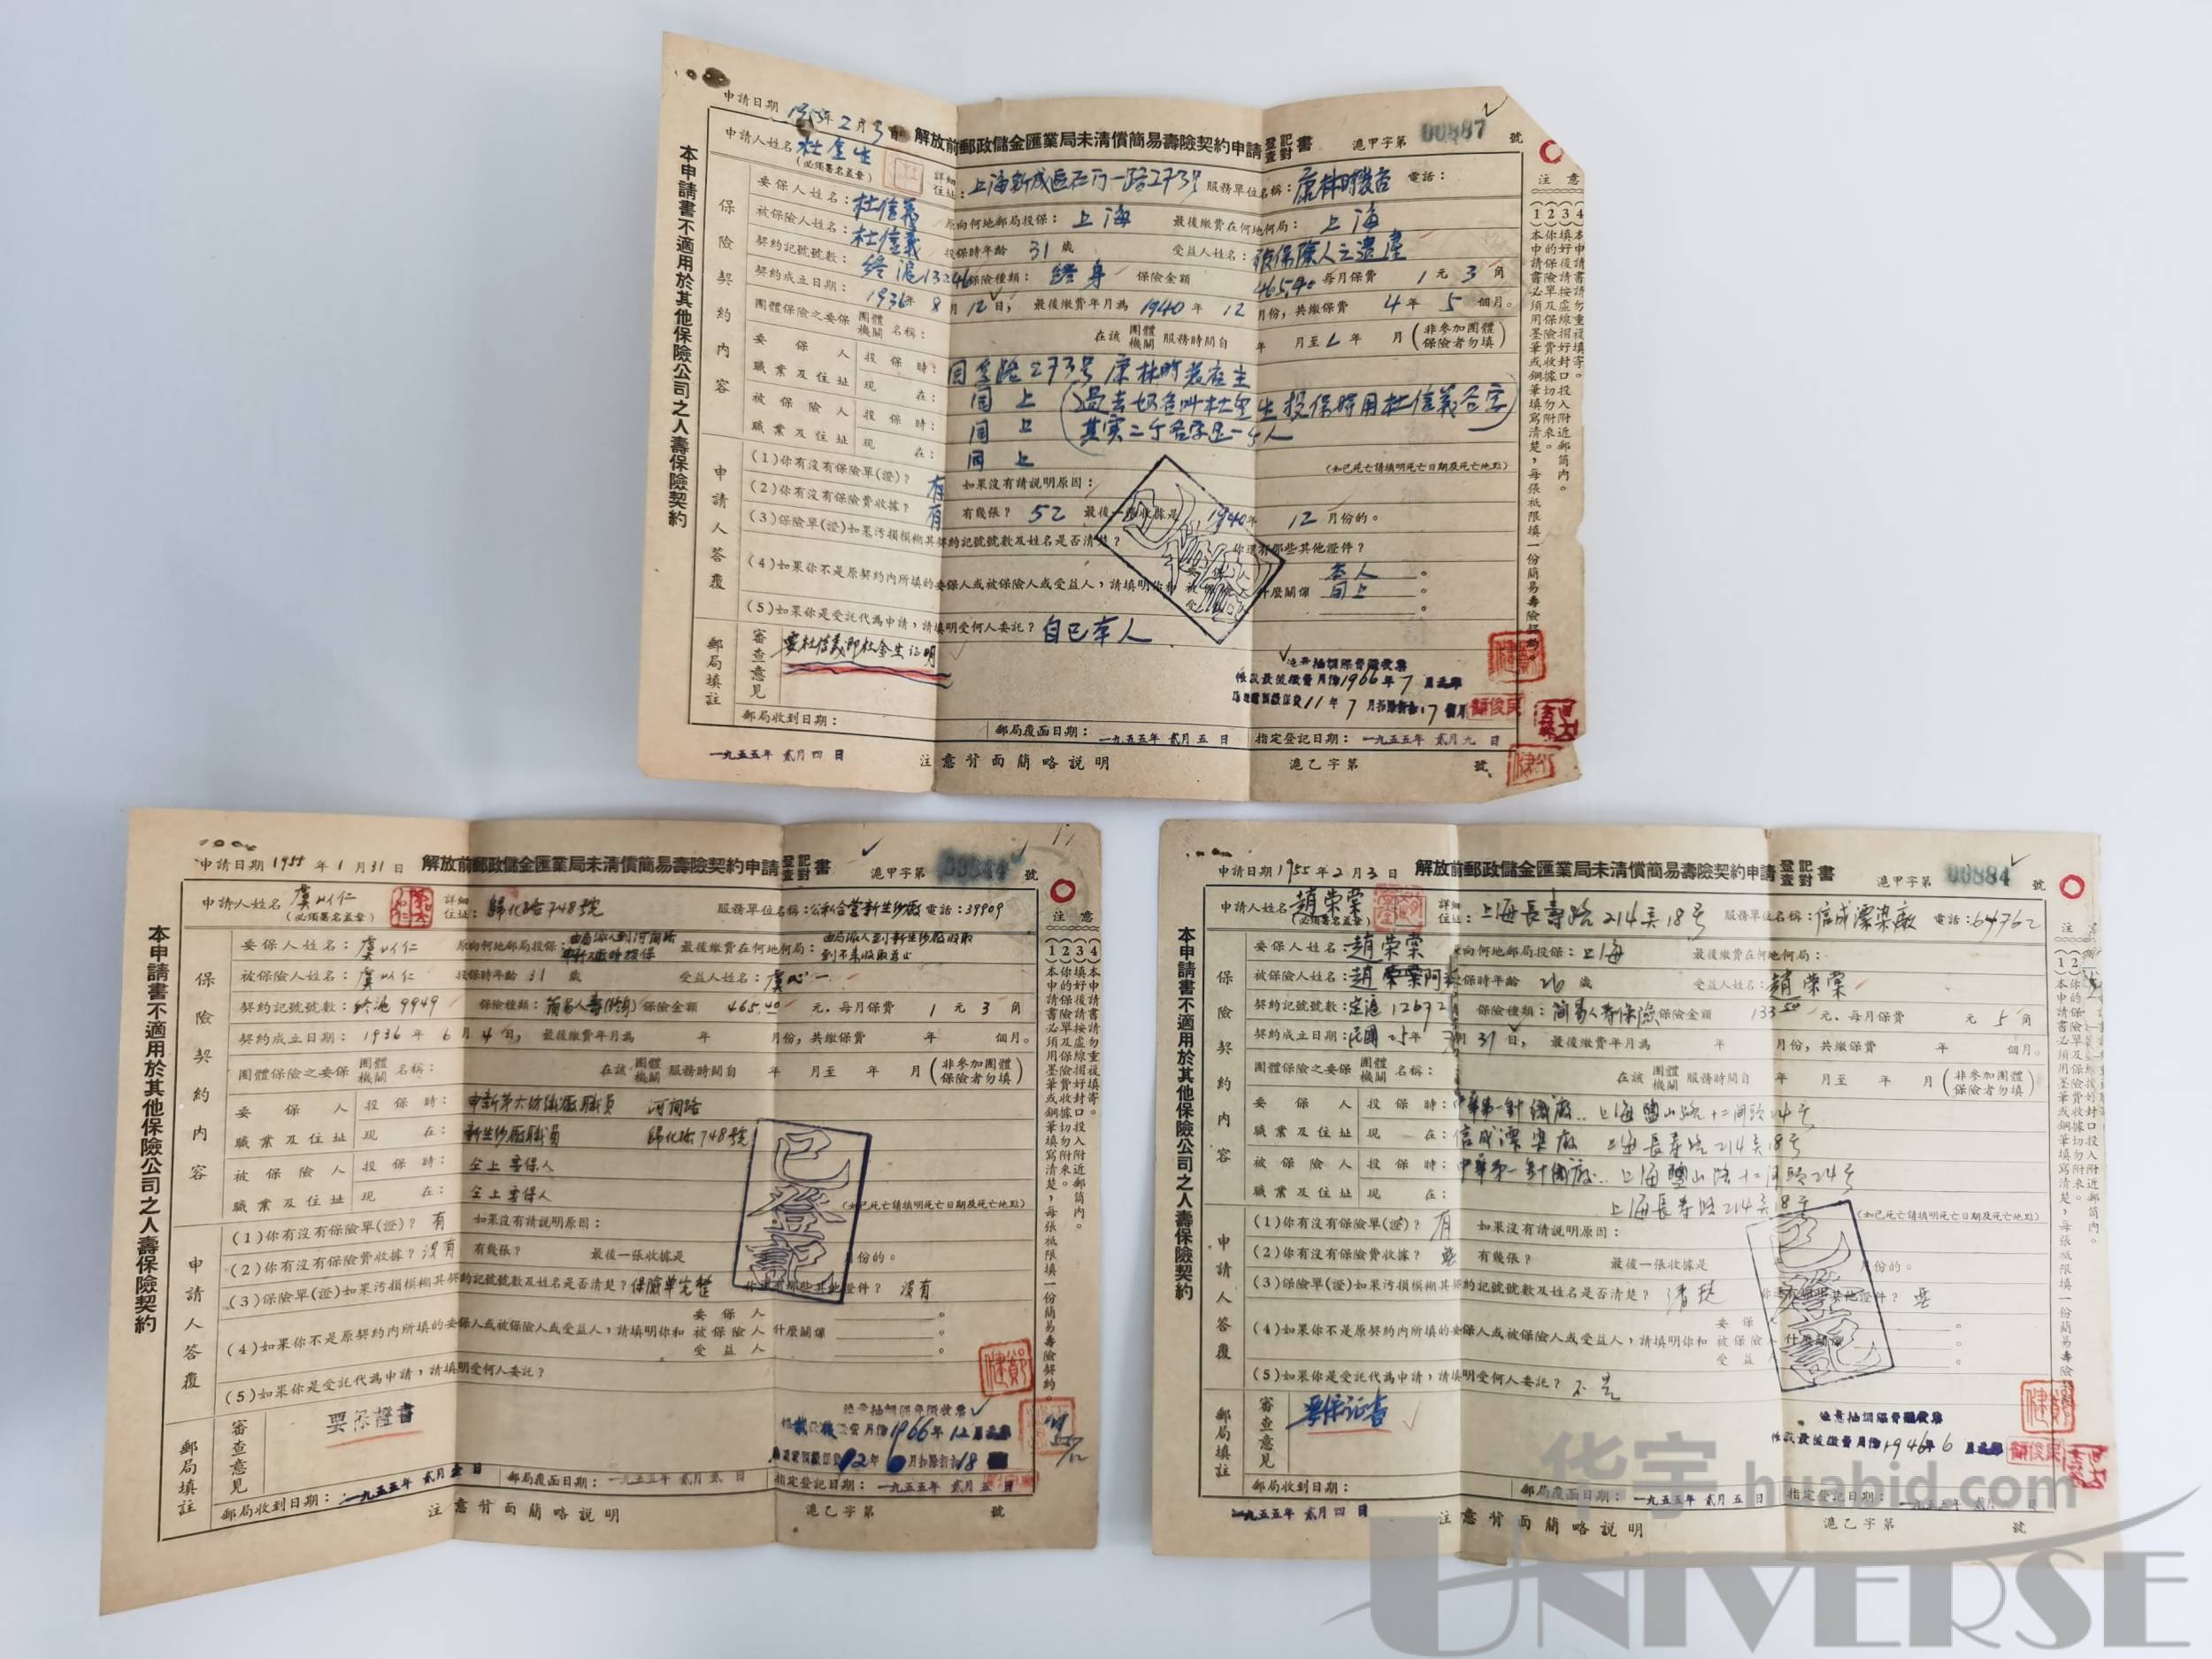 申請日期 1955年2月3日 解放前郵政儲金匯業局未清償簡易壽險契約申請登記查對書 滬甲字第 00887 號
申請人姓名 杜金生 (必須署名蓋章) 詳細住址: 上海新成區石門一路273號 服務單位名稱: 康林時裝店 電話:
保險契約內容
要保人姓名: 杜信義 原向何地郵局投保: 上海 最後繳費在何地何局: 上海
被保險人姓名: 杜信義 投保時年齡 31 歲 受益人姓名: 被保險人之遺產
契約記號號數: 終滬13246 保險種類: 終身 保險金額 465.40 每月保費 1 元 3 角
契約成立日期: 1936年 8 月 12 日, 最後繳費年月為 1940 年 12 月份, 共繳保費 4 年 5 個月。
團體保險之要保團體機關名稱: 在該團體機關服務時間自 年 月至 年 月 (非參加團體保險者勿填)
要保人職業及住址 投保時: 同孚路273号 康林時裝店主
現在: 同上 (過去奶名叫杜金生投保時用杜信義名字
被保險人職業及住址 投保時: 同上 其实二个名字是一个人)
現在: 同上 (如已死亡請填明死亡日期及死亡地點)
申請人答覆
(1)你有沒有保險單(證)? 有 如果沒有請說明原因:
(2)你有沒有保險費收據? 有 有幾張? 52 最後一張收據是 1940年 12 月份的。
(3)保險單(證)如果污損模糊其契約記號號數及姓名是否清楚? 你還有那些其他證件?
(4)如果你不是原契約內所填的要保人或被保險人或受益人,請填明你和 要保人 被保險人 受益人 什麼關係 本人 同上
(5)如果你是受託代為申請,請填明受何人委託? 自已本人
郵局填註 審查意見 要杜信義即杜金生证明
帳載最後繳費月份1966年7月
11年7月 17個月 顧俊民
郵局收到日期: 一九五五年 貳月四日 郵局覆函日期: 一九五五年 貳月五日 指定登記日期: 一九五五年 貳月九日
注意背面簡略說明 滬乙字第 號
本申請書不適用於其他保險公司之人壽保險契約
注意
(1)本申請書必須用墨筆或鋼筆填寫清楚,每張祗限填一份簡易壽險契約。
(2)你的保險單及保險費收據切勿附來。
(3)填好後請按虛線摺好封口投入附近郵筒內。
(4)本申請書請勿重複填寄。
已登記
申請日期 1955 年 1 月 31 日 解放前郵政儲金匯業局未清償簡易壽險契約申請登記查對書 滬甲字第 號
申請人姓名 虞以仁 (必須署名蓋章) 詳細住址: 歸化路748號 服務單位名稱: 公私合營新生紗廠 電話: 39909
保險契約內容
要保人姓名: 虞以仁 原向何地郵局投保: 由局派人到河間路申新六廠投保 最後繳費在何地何局: 由局派人到新生紗廠收取到不來收取為止
被保險人姓名: 虞以仁 投保時年齡 31 歲 受益人姓名: 虞心一
契約記號號數: 終滬 9949 保險種類: 簡易人壽(終身) 保險金額 465.40 元. 每月保費 1 元 3 角
契約成立日期: 1936 年 6 月 4 日, 最後繳費年月為 年 月份, 共繳保費 年 個月。
團體保險之要保團體機關名稱: 在該團體機關服務時間自 年 月至 年 月 (非參加團體保險者勿填)
要保人職業及住址 投保時: 申新第六紡織廠職員 河間路
現在: 新生紗廠職員 歸化路748號
被保險人職業及住址 投保時: 仝上要保人
現在: 仝上要保人 (如已死亡請填明死亡日期及死亡地點)
申請人答覆
(1)你有沒有保險單(證)? 有 如果沒有請說明原因:
(2)你有沒有保險費收據? 沒有 有幾張? 最後一張收據是 月份的。
(3)保險單(證)如果污損模糊其契約記號號數及姓名是否清楚? 保險單完整 你還有那些其他證件? 沒有
(4)如果你不是原契約內所填的要保人或被保險人或受益人,請填明你和 要保人 被保險人 受益人 什麼關係
(5)如果你是受託代為申請,請填明受何人委託?
郵局填註 審查意見 要保證書
月份1966年12月
12年6月 18
郵局收到日期: 一九五五年 貳月 日 郵局覆函日期: 一九五五年 貳月 日 指定登記日期: 一九五五年 貳月五日
注意背面簡略說明 滬乙字第 號
本申請書不適用於其他保險公司之人壽保險契約
注意
(1)本申請書必須用墨筆或鋼筆填寫清楚,每張祗限填一份簡易壽險契約。
(2)你的保險單及保險費收據切勿附來。
(3)填好後請按虛線摺好封口投入附近郵筒內。
(4)本申請書請勿重複填寄。
已登記
申請日期 1955年 2 月 3 日 解放前郵政儲金匯業局未清償簡易壽險契約申請登記查對書 滬甲字第 00884 號
申請人姓名 趙榮棠 (必須署名蓋章) 詳細住址: 上海長壽路214弄18号 服務單位名稱: 信成漂染廠 電話: 64762
保險契約內容
要保人姓名: 趙榮棠 原向何地郵局投保: 上海 最後繳費在何地何局:
被保險人姓名: 趙 投保時年齡 26 歲 受益人姓名: 趙榮棠
契約記號號數: 定滬 12672 保險種類: 簡易人壽保險 保險金額 133.50 元. 每月保費 元 5 角
契約成立日期: 民國 25年 月 31 日, 最後繳費年月為 年 月份, 共繳保費 年 個月。
團體保險之要保團體機關名稱: 在該團體機關服務時間自 年 月至 年 月 (非參加團體保險者勿填)
要保人職業及住址 投保時: 中華第一針織廠.. 上海 山路十二间頭24号
現在: 信成漂染廠 上海長壽路214弄18号
被保險人職業及住址 投保時: 中華第一針織廠.. 上海 山路十二间頭24号
現在: 上海長壽路214弄18号 (如已死亡請填明死亡日期及死亡地點)
申請人答覆
(1)你有沒有保險單(證)? 有 如果沒有請說明原因:
(2)你有沒有保險費收據? 有幾張? 最後一張收據是 月份的。
(3)保險單(證)如果污損模糊其契約記號號數及姓名是否清楚? 清楚 你還有那些其他證件?
(4)如果你不是原契約內所填的要保人或被保險人或受益人,請填明你和 要保人 被保險人 受益人 什麼關係
(5)如果你是受託代為申請,請填明受何人委託? 不是
郵局填註 審查意見 要保证書
帳載最後繳費月份1946年6月 顧俊民
郵局收到日期: 一九五五年 貳月四日 郵局覆函日期: 一九五五年 貳月五日 指定登記日期: 一九五五年 貳月 日
注意背面簡略說明 滬乙字第 號
本申請書不適用於其他保險公司之人壽保險契約
已登記
华宇 huabid.com
UNIVERSE